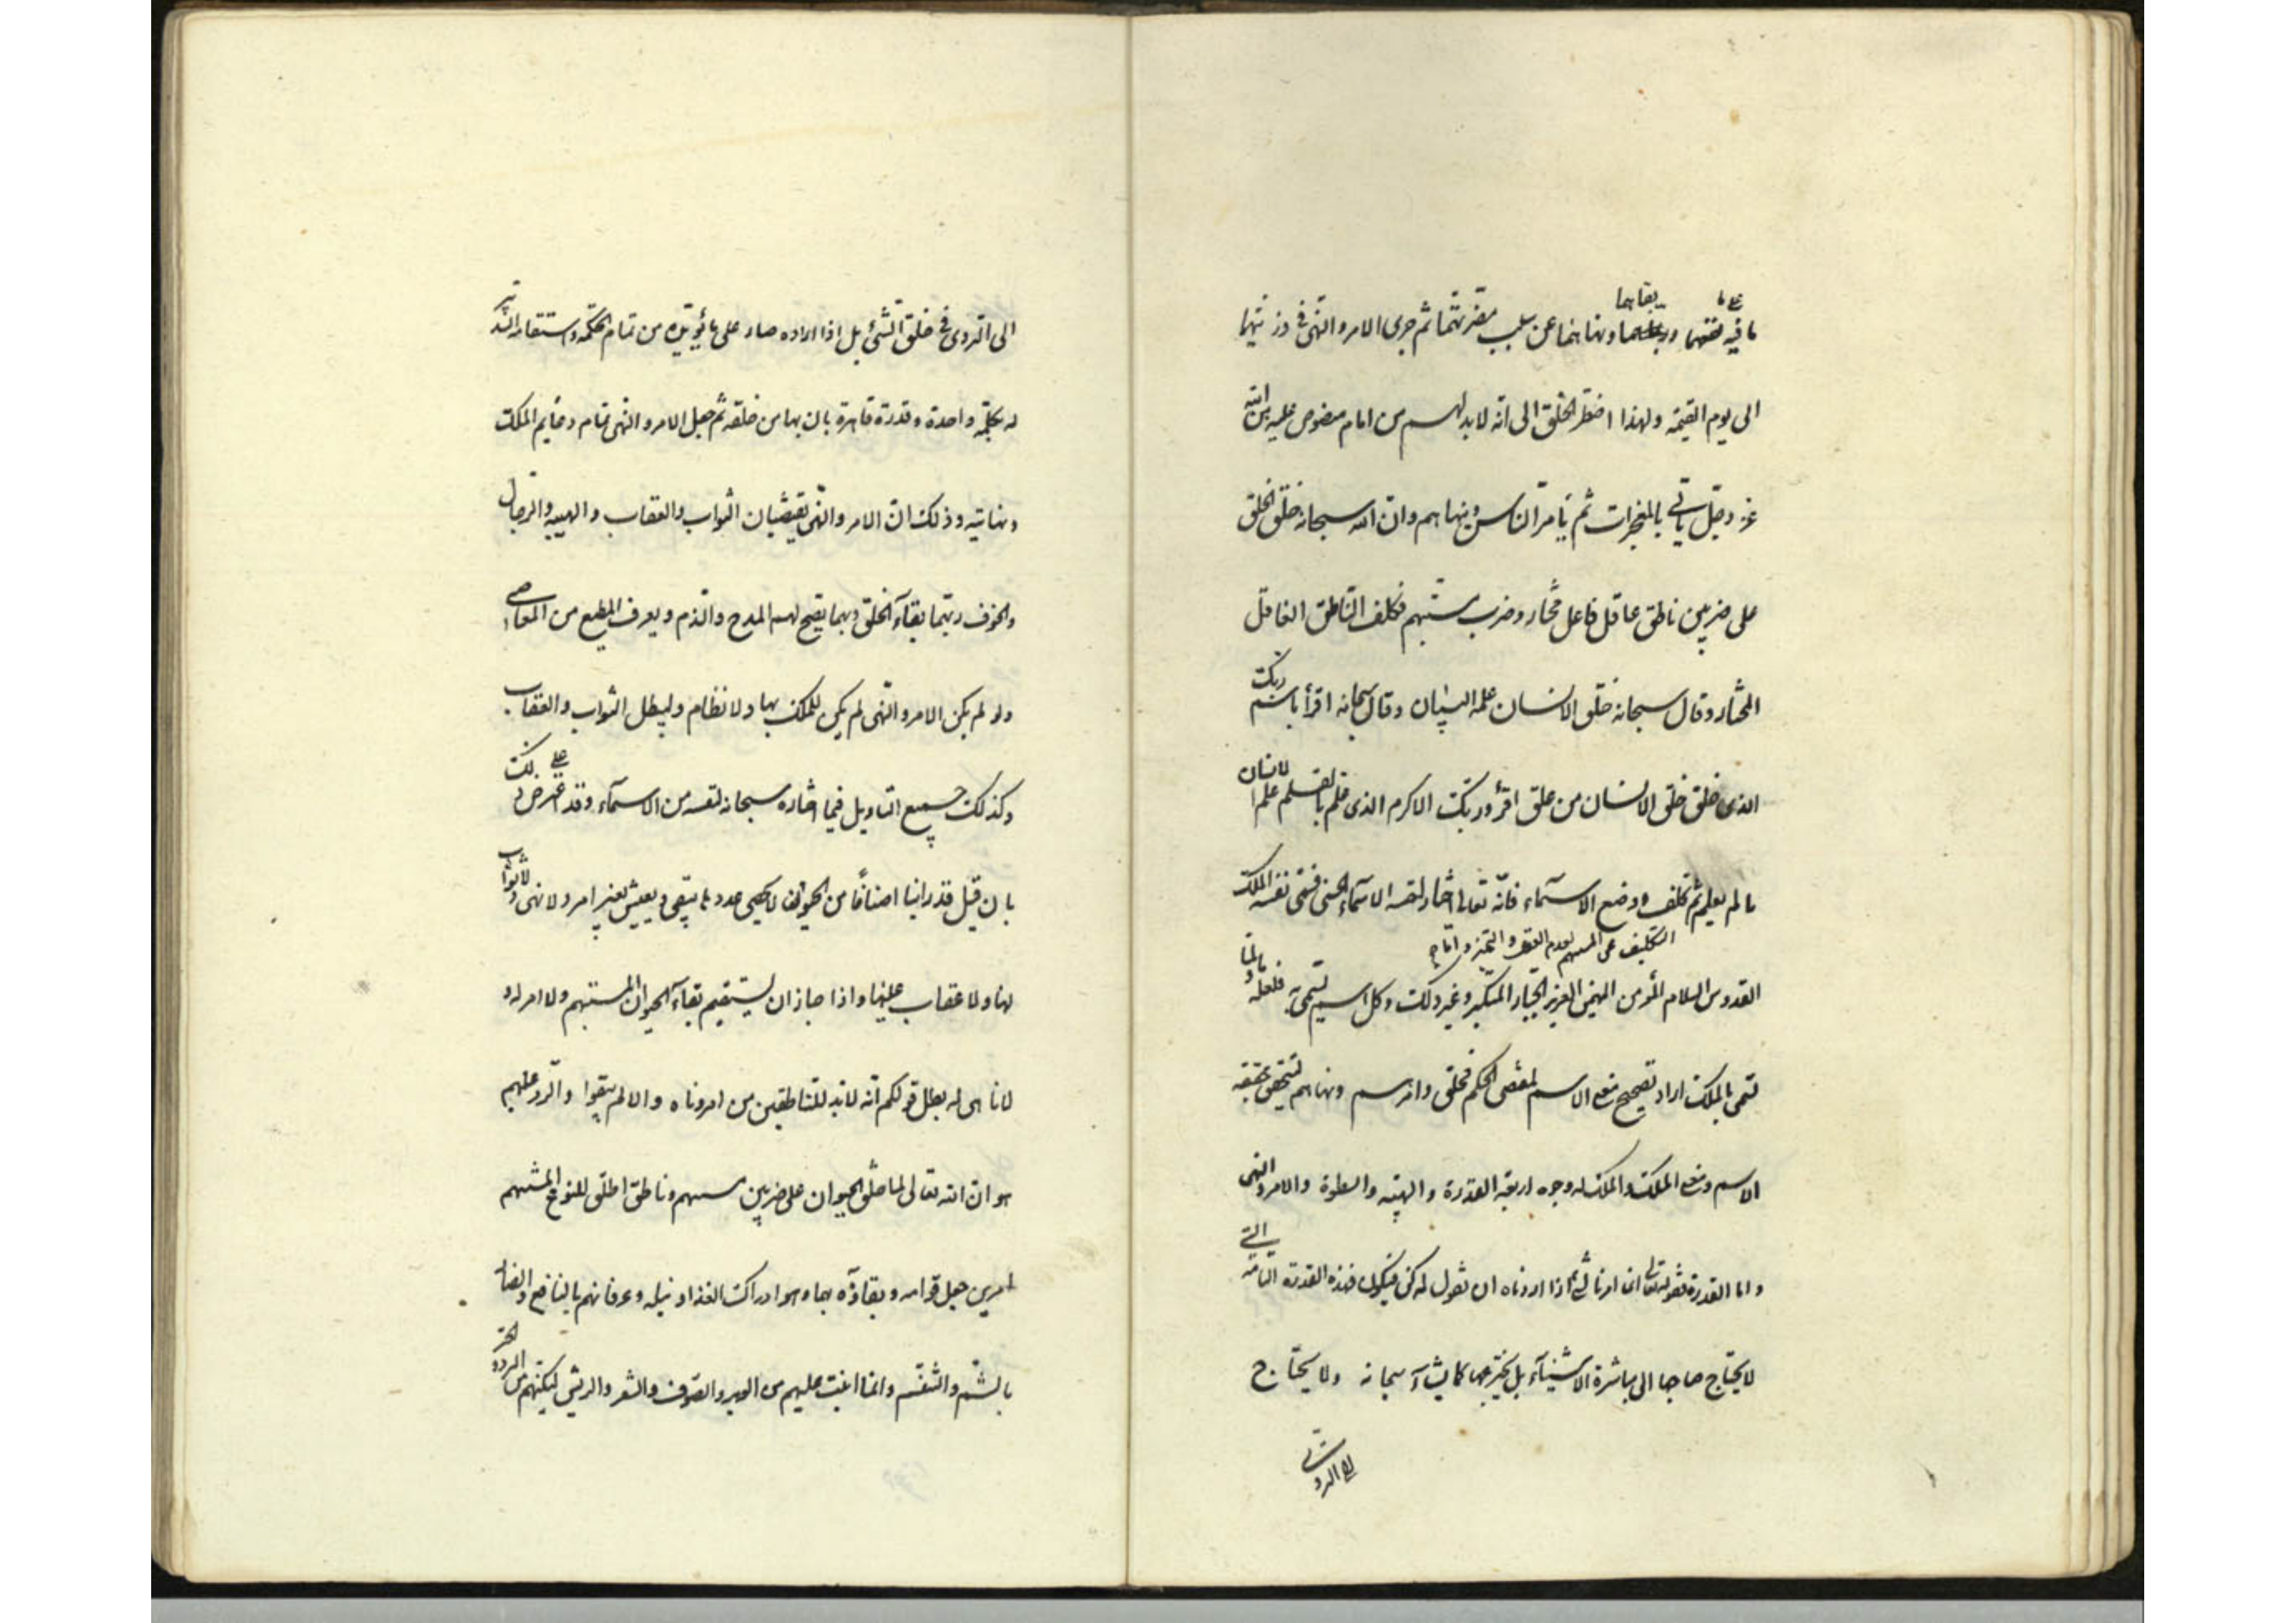 على ما بقائهما
ما فيه نفعهما ونهاهما عن سبب مضرتهما ثم جرى الامر والنهى فى ذريتهما
الى يوم القيمة ولهذا اضطر الخلق الى انه لابد لهم من امام منصوص عليه من الله
عز وجل ياتى بالمعجزات ثم يأمر الناس وينهاهم وان الله سبحانه خلق الخلق
على ضربين ناطق عاقل فاعل مختار وضرب مستبهم فكلف الناطق العاقل
المختار وقال سبحانه خلق الانسان علمه البيان وقال سبحانه اقرأ باسم ربك
الذى خلق خلق الانسان من علق اقرأ وربك الاكرم الذى علم بالقلم علم الانسان
ما لم يعلم ثم كلف ووضع التكليف عن المستبهم لعدم العقل والتميز واما وضع الاسماء فانه تعالى اختار لنفسه الاسماء الحسنى فسمى نفسه الملك
القدوس السلام المؤمن المهيمن العزيز الجبار المتكبر وغير ذلك وكل اسم يسمى به فلعلة ما ولما
تسمى بالملك اراد تصحيح معنى الاسم لمقتضى الحكم فخلق وامرهم ونهاهم ليتحقق حقيقة
الاسم ومعنى الملك والملك له وجوه اربعة القدرة والهيبة والسطوة والامر والنهى
واما القدرة فقوله تعالى انما امرنا لشئ اذا اردناه ان نقول له كن فيكون فهذه القدرة التامة التى
لا يحتاج صاحبها الى مباشرة الاشياء بل يخترعها كما يشاء سبحانه ولا يحتاج
الى التروى
الى التروى فى خلق الشئ بل اذا اراده صار على ما يريده من تمام الحكمة واستقام التدبير
له بكلمة واحدة وقدرة قاهرة بان بها من خلقه ثم جعل الامر والنهى تمام دعايم الملك
ونهايته وذلك ان الامر والنهى يقتضيان الثواب والعقاب والهيبة والرجاء
والخوف وبهما بقاء الخلق وبهما يصح لهم المدح والذم ويعرف المطيع من العاصى
ولو لم يكن الامر والنهى لم يكن للملك بهاء ولا نظام ولبطل الثواب والعقاب
وكذلك جميع التاويل فيما اختاره سبحانه لنفسه من الاسماء وقد اعترض على ذلك
بان قيل قد راينا اصنافا من الحيوان لا يحصى عددها يبقى ويعيش بغير امر ولا نهى ولا ثواب
لها ولا عقاب عليها واذا جاز ان يستقيم بقاء الحيوان المستبهم ولا امر له و
لا ناهى له بطل قولكم انه لابد للناطقين من امر وناه والا لم يبقوا والرد عليهم
هو ان الله تعالى لما خلق الحيوان على ضربين مستبهم وناطق اطلق للنوع المستبهم
امرين جعل قوامه وبقاؤه بهما وهو ادراك الغذاء ونيله وعرفانهم بالنافع والضار
بالشم والتنسم وانما انبت عليهم من الوبر والصوف والشعر والريش ليكنهم من البرد والحر